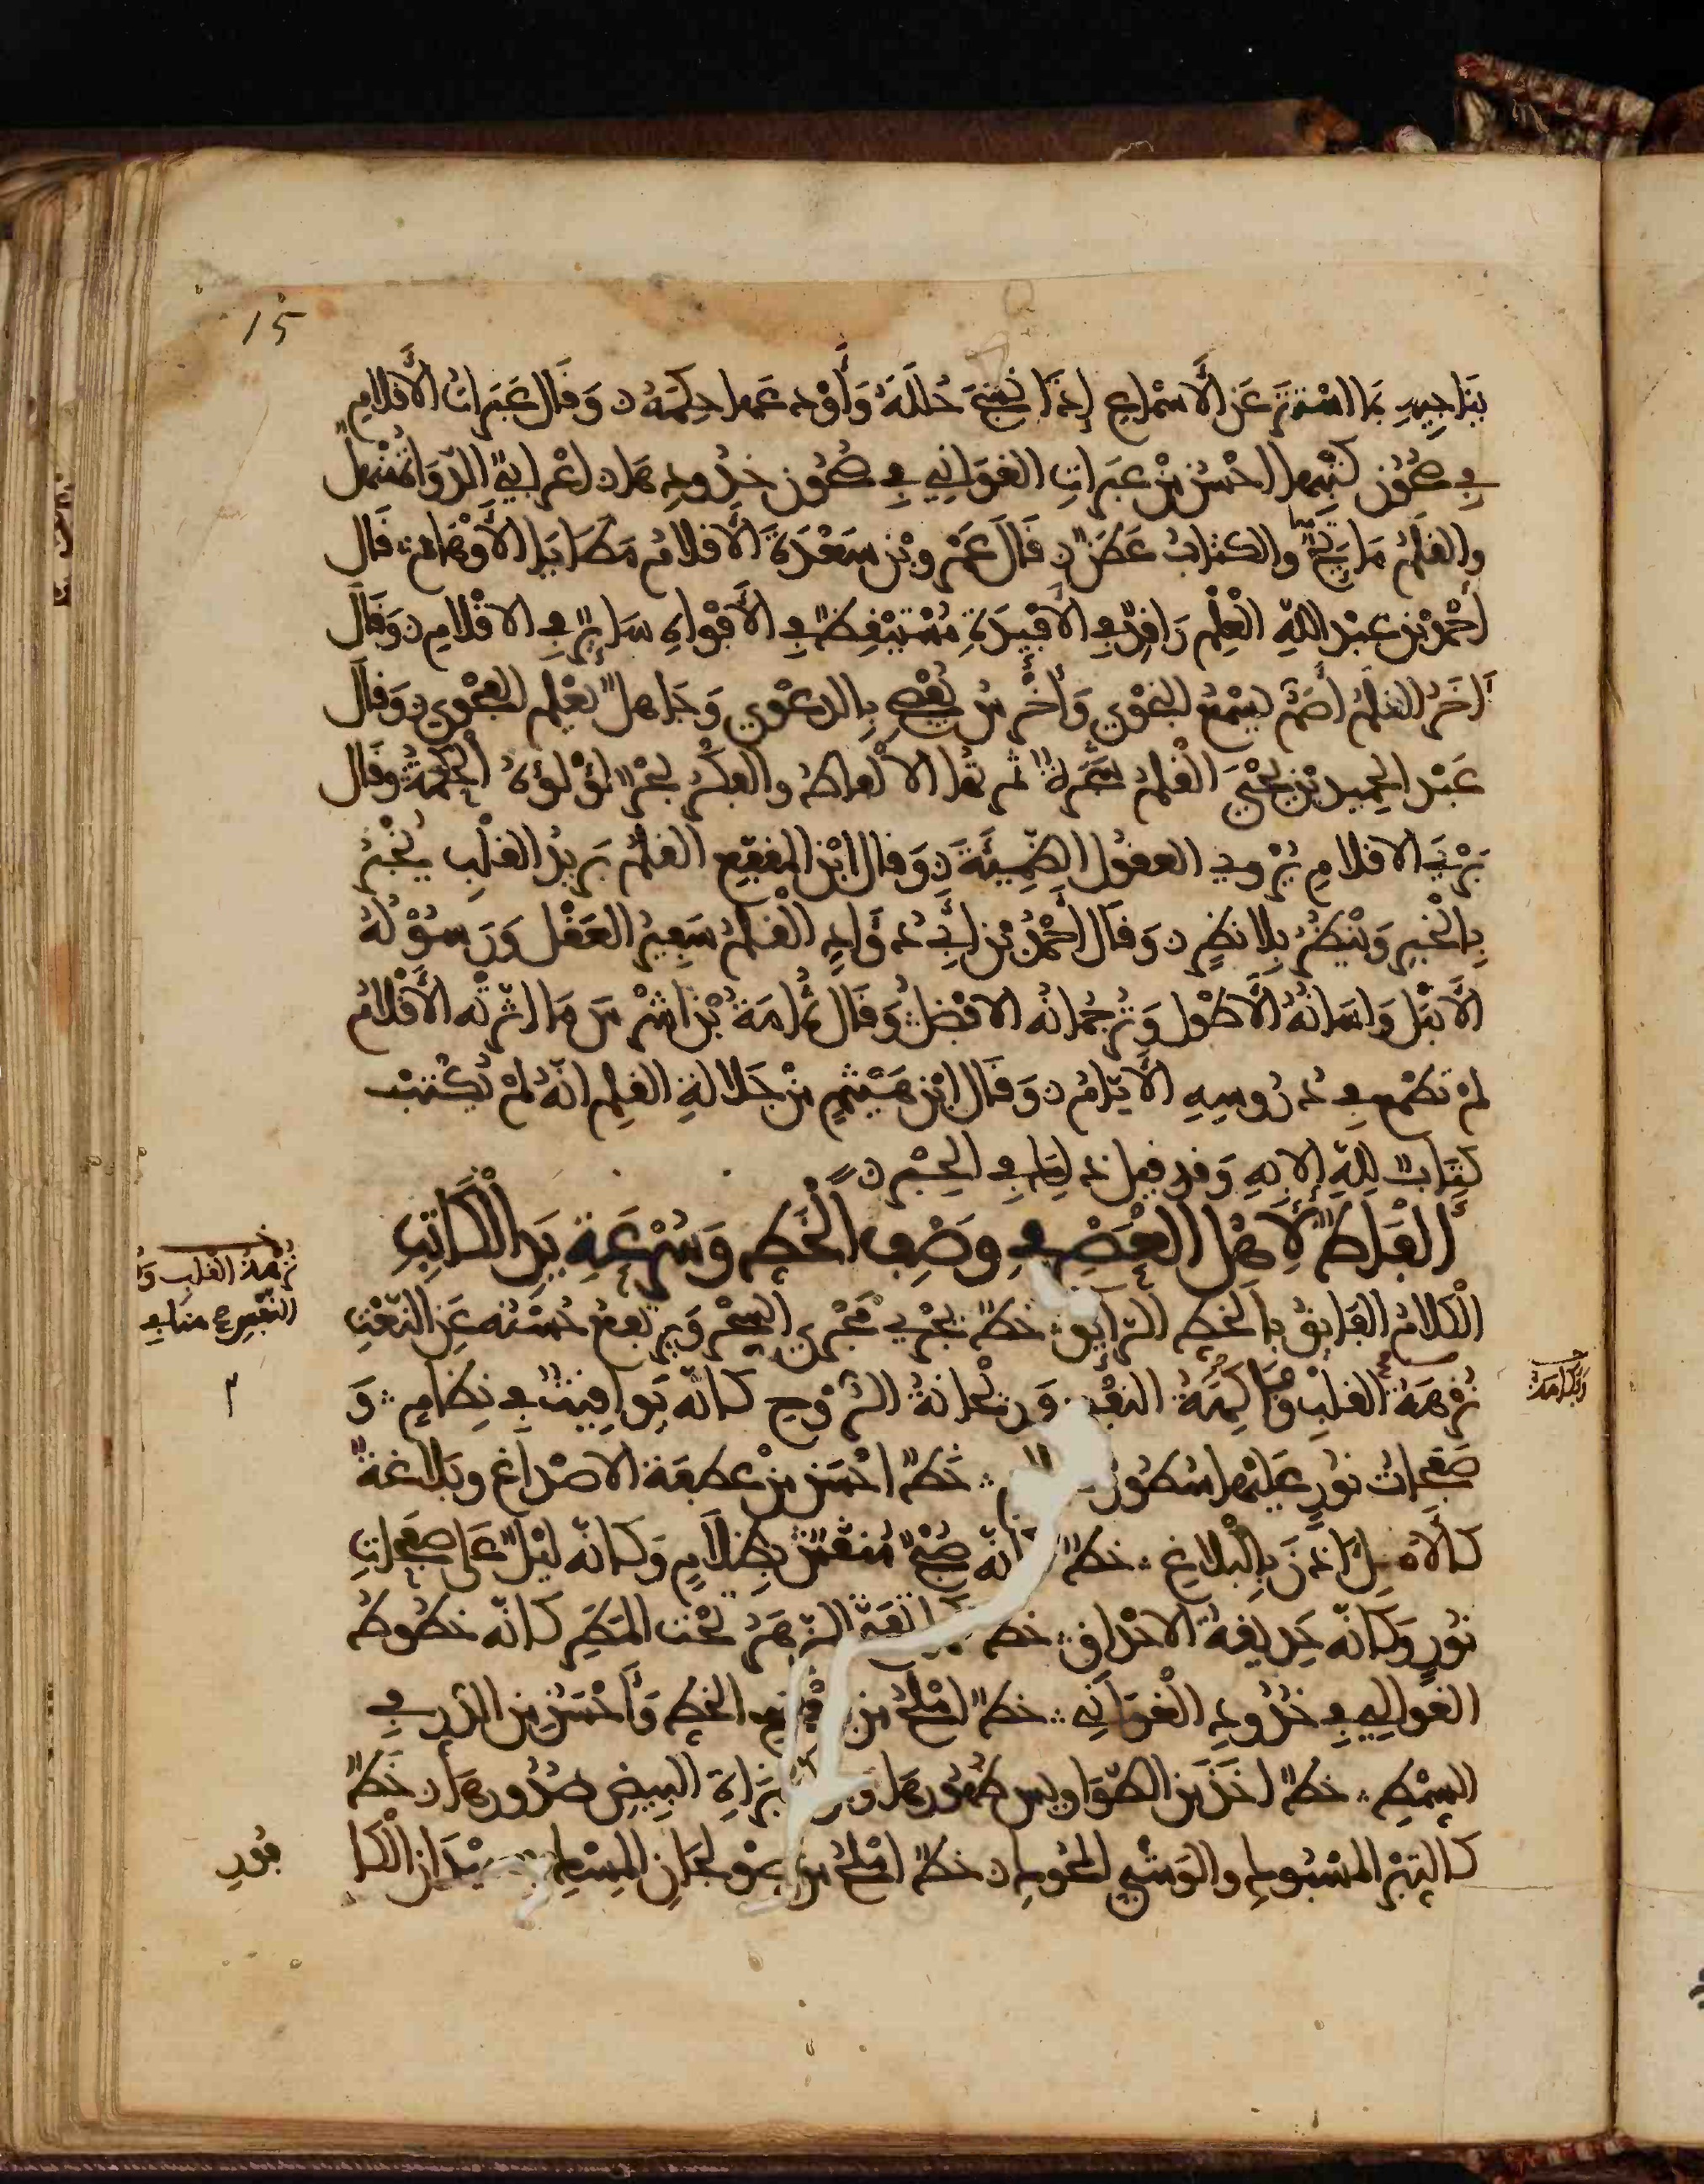 15
يناجيه بما استتر عن الأسماع إذا نسج حلله وأودعها حكمه وقال عبرات الأقلام
في صحون كتبها احسن من عبرات الغواني في صحون خدودها اعرابي الدواة منهل
والقلم ماتح والكتاب عطن قال عمرو بن مسعدة الأقلام مطايا الأوهام قال
أحمد بن عبد الله القلم راقد في الأفيدة مستيقظ في الأفواه ساير في الاقلام وقال
آخر القلم أصم يسمع النجوى وأخرس يفصح بالدعوى وجاهل يعلم الفحوى وقال
عبد الحميد بن يحيى القلم شجرة ثمرتها الالفاظ والفكر بحر لؤلؤه الحكمة وقال
بري الاقلام تروي العقول الظميئة وقال ابن المقفع القلم بريد القلب يخبر
بالخبر وينظر بلا نظر وقال أحمد بن أبي دؤاد القلم سفير العقل ورسوله
الأنبل ولسانه الأطول وترجمانه الافضل وقال ثمامة بن أشرس ما اثرته الأقلام
لم تطمع في دروسه الأيام وقال ابن هيثم من جلالة القلم انه لم يكتب
كتاب لله إلا به وقد قيل ذلك في الحبر
ألفاظ لأهل العصر في وصف الخط وسرعة يد الكاتب
الكلام الفايق بالخط الرايق خط يجري مجرى السحر ويرتفع حسنه عن النعت
نزهة القلب وفاكهة النفس وريحانة الروح كأنه يواقيت في نظام و
صفحات نور عليها سطور خط احسن من عطفة الاصداغ وبلاغة
كالامل اذن بالبلاغ خط كانه صبح منقش بظلام وكانه ليل على صفحات
نور وكانه حديقة الاحداق خط الزهر تحت المطر كانه خطوط
الغوالي في خدود الغواني خط املح من الخط وأحسن من الدر في
السمط خط اخذ من الطواويس ظهورها ومن البزاة البيض صدورها خط
كالتبر المسبوك والوشي المحوك خط املح من صولجان المسك ميدان الكا
فور
نزهة القلب و
وفكاهة